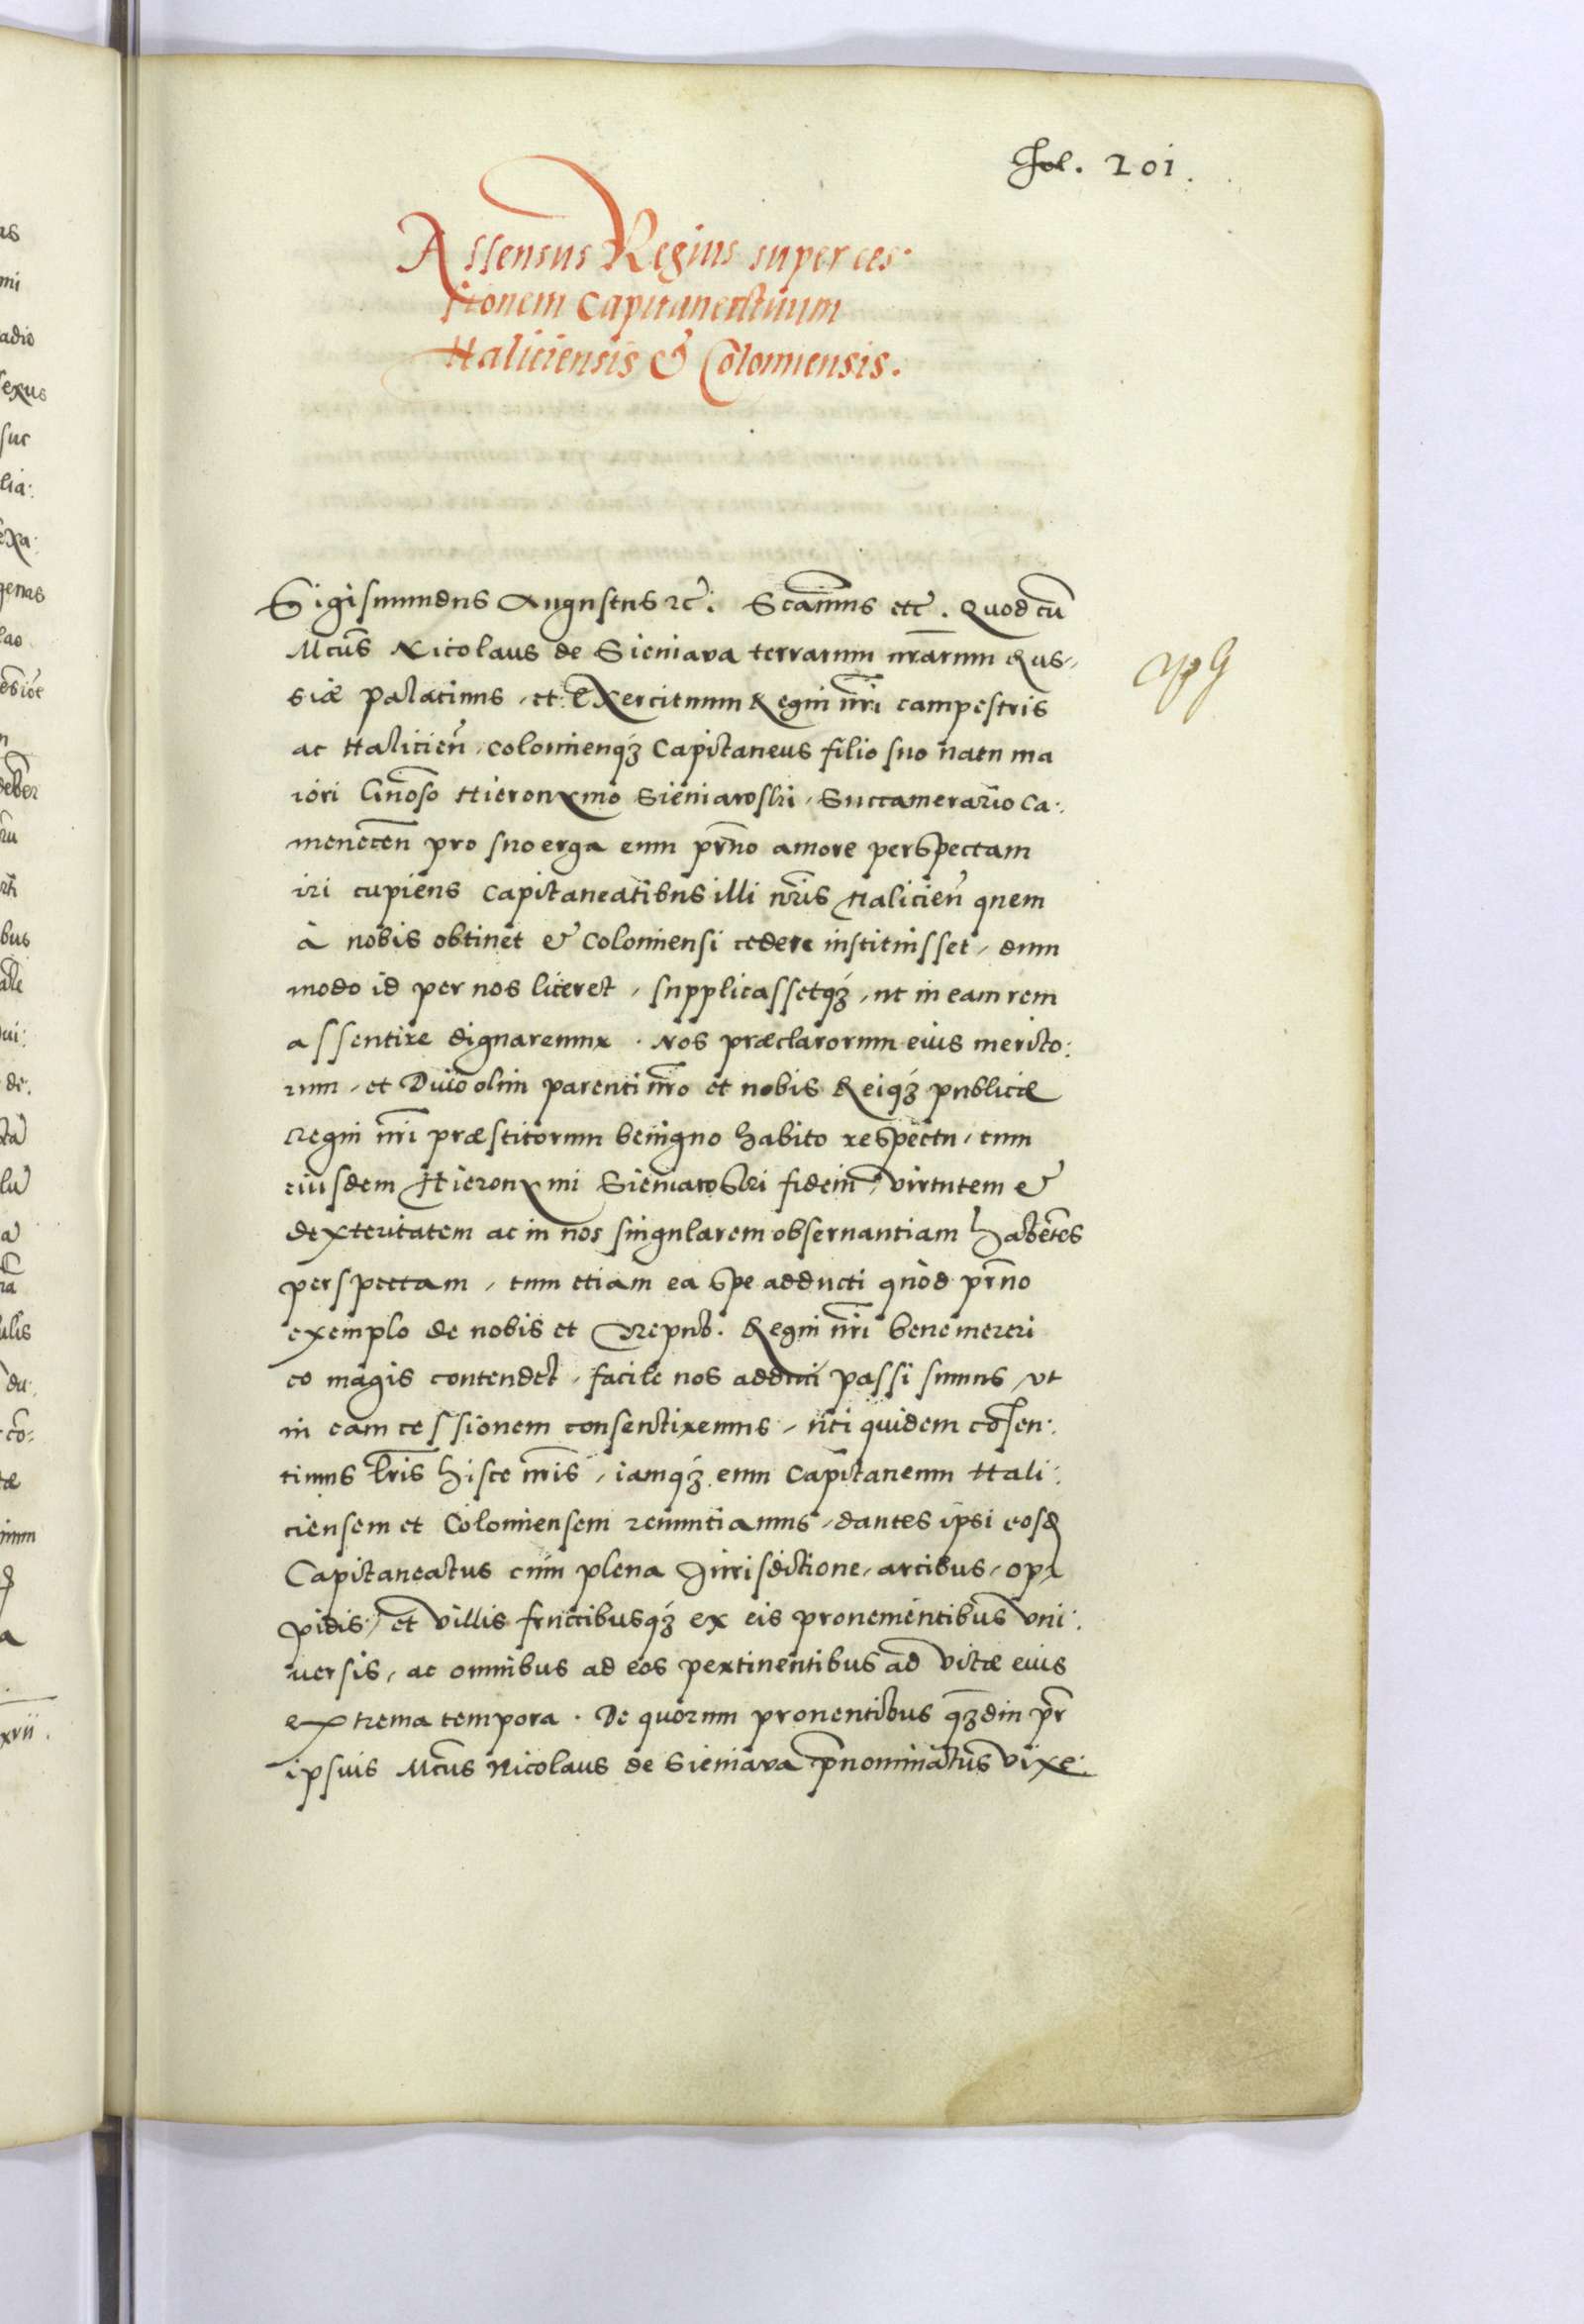 Fol. 201.
Assensus Regius super ces:
sionem Capitaneatuum
Haliciensis & Colomiensis.
Sigismundus Augustus etc̃. Scamus etc̃. Quod cũ
Mcũs Nicolaus de Sieniava terrarum nr̃arum Rus,,
siæ Palatinus, et Exercituum Regni nr̃i campestris
ac Halicieñ, Colomienq́ꝫ Capitaneus filio suo natu ma
iori Gnõso Hieronymo Sieniawski, Succamerario Ca:
meneceñ pro suo erga eum pr̃no amore perspectam
iri cupiens Capitaneatibus illi nr̃is Halicieñ quem
à nobis obtinet & Colomiensi cedere instituisset, dum
modo id per nos liceret, supplicassetq́ꝫ, ut in eam rem
assentire dignaremur. Nos præclarorum eius merito:
rum, et Divo olim parenti nr̃o et nobis Reiq́ꝫ publicæ
Regni nr̃i præstitorum benigno habito respectu, tum
eiusdem Hieronymi Sieniawski fidem, virtutem &
dexteritatem ac in nos singularem observantiam habẽtes
perspectam, tum etiam ea spe adducti quòd pr̃no
exemplo de nobis et Repub. Regni nr̃i benemereri
eo magis contendet, facile nos adduci passi sumus, ut
in eam cessionem consentiremus, uti quidem cõsen:
timus lr̃is hisce nr̃is, iamq́ꝫ eum Capitaneum Hali:
ciensem et Colomiensem renuntiamus, dantes ipsi eosd
Capitaneatus cum plena Jurisdictione, arcibus, op,
pidis, et villis fructibusq́ꝫ ex eis provenientibus vni:
versis, ac omnibus ad eos pertinentibus ad vitæ eius
extrema tempora. De quorum proventibus q̃ꝫdiu pr̃
ipsius Mcũs Nicolaus de Sieniava p̃nominatus vixe: